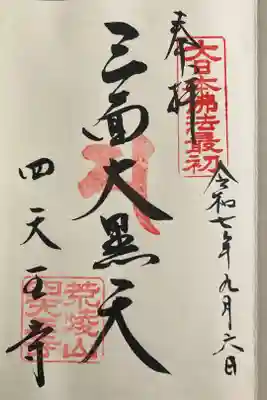 奉拝
大日本佛法最初
令和七年九月六日
三面大黒天
四天王寺
荒陵山
四天王寺